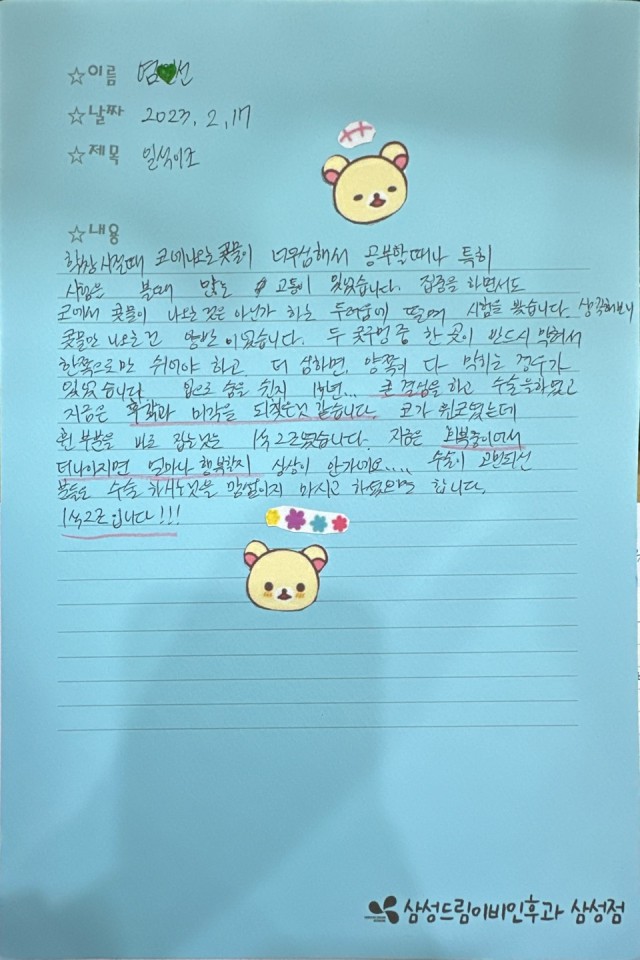 ☆이름 염♥선
☆날짜 2023. 2. 17
☆제목 일석이조
☆내용
학창시절때 코에나오는 콧물이 너무심해서 공부할때나 특히
시험은 볼때 많은 고통이 있었습니다. 집중을 하면서도
코에서 콧물이 나오는 것은 아닌가 하는 두려움에 떨며 시험을 봤습니다. 생각해보니
콧물만 나오는건 양반이었습니다. 두 콧구멍 중 한 곳이 반드시 막혀서
한쪽으로만 쉬어야 하고 더 심하면, 양쪽이 다 막히는 경우가
있었습니다. 입으로 숨을 쉰지 14년... 큰 결심을 하고 수술을하였고
지금은 후각과 미각을 되찾은것 같습니다. 코가 휜코였는데
휜 부분을 바로 잡는것은 1석2조였습니다. 지금은 회복중이어서
더나아지면 얼마나 행복할지 상상이 안가네요.... 수술이 고민되신
분들도 수술 하시는것을 망설이지 마시고 하셨으면 합니다.
1석2조입니다!!!
삼성드림이비인후과 삼성점